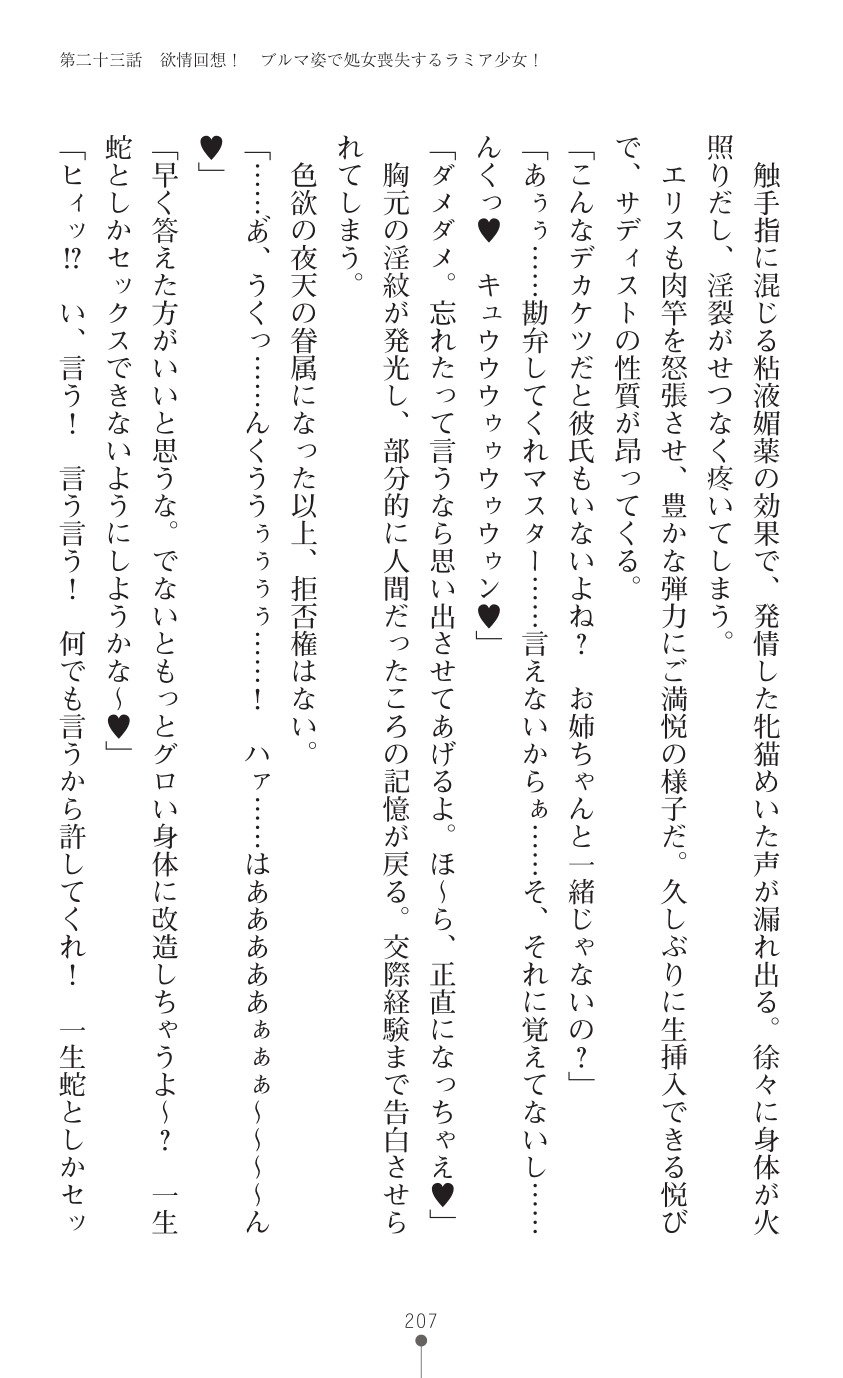 第二十三話　欲情回想！　ブルマ姿で処女喪失するラミア少女！
　触手指に混じる粘液媚薬の効果で、発情した牝猫めいた声が漏れ出る。徐々に身体が火
照りだし、淫裂がせつなく疼いてしまう。
　エリスも肉竿を怒張させ、豊かな弾力にご満悦の様子だ。久しぶりに生挿入できる悦び
で、サディストの性質が昂ってくる。
「こんなデカケツだと彼氏もいないよね？　お姉ちゃんと一緒じゃないの？」
「あぅぅ……勘弁してくれマスター……言えないからぁ……そ、それに覚えてないし……
んくっ♥　キュウウウゥゥウゥウゥン♥」
「ダメダメ。忘れたって言うなら思い出させてあげるよ。ほ～ら、正直になっちゃえ♥」
　胸元の淫紋が発光し、部分的に人間だったころの記憶が戻る。交際経験まで告白させら
れてしまう。
　色欲の夜天の眷属になった以上、拒否権はない。
「……あ゛、うくっ……んくううぅぅぅぅ……！　ハァ……はあああああぁぁぁ～～～～ん
♥」
「早く答えた方がいいと思うな。でないともっとグロい身体に改造しちゃうよ～？　一生
蛇としかセックスできないようにしようかな～♥」
「ヒィッ!?　い、言う！　言う言う！　何でも言うから許してくれ！　一生蛇としかセッ
207